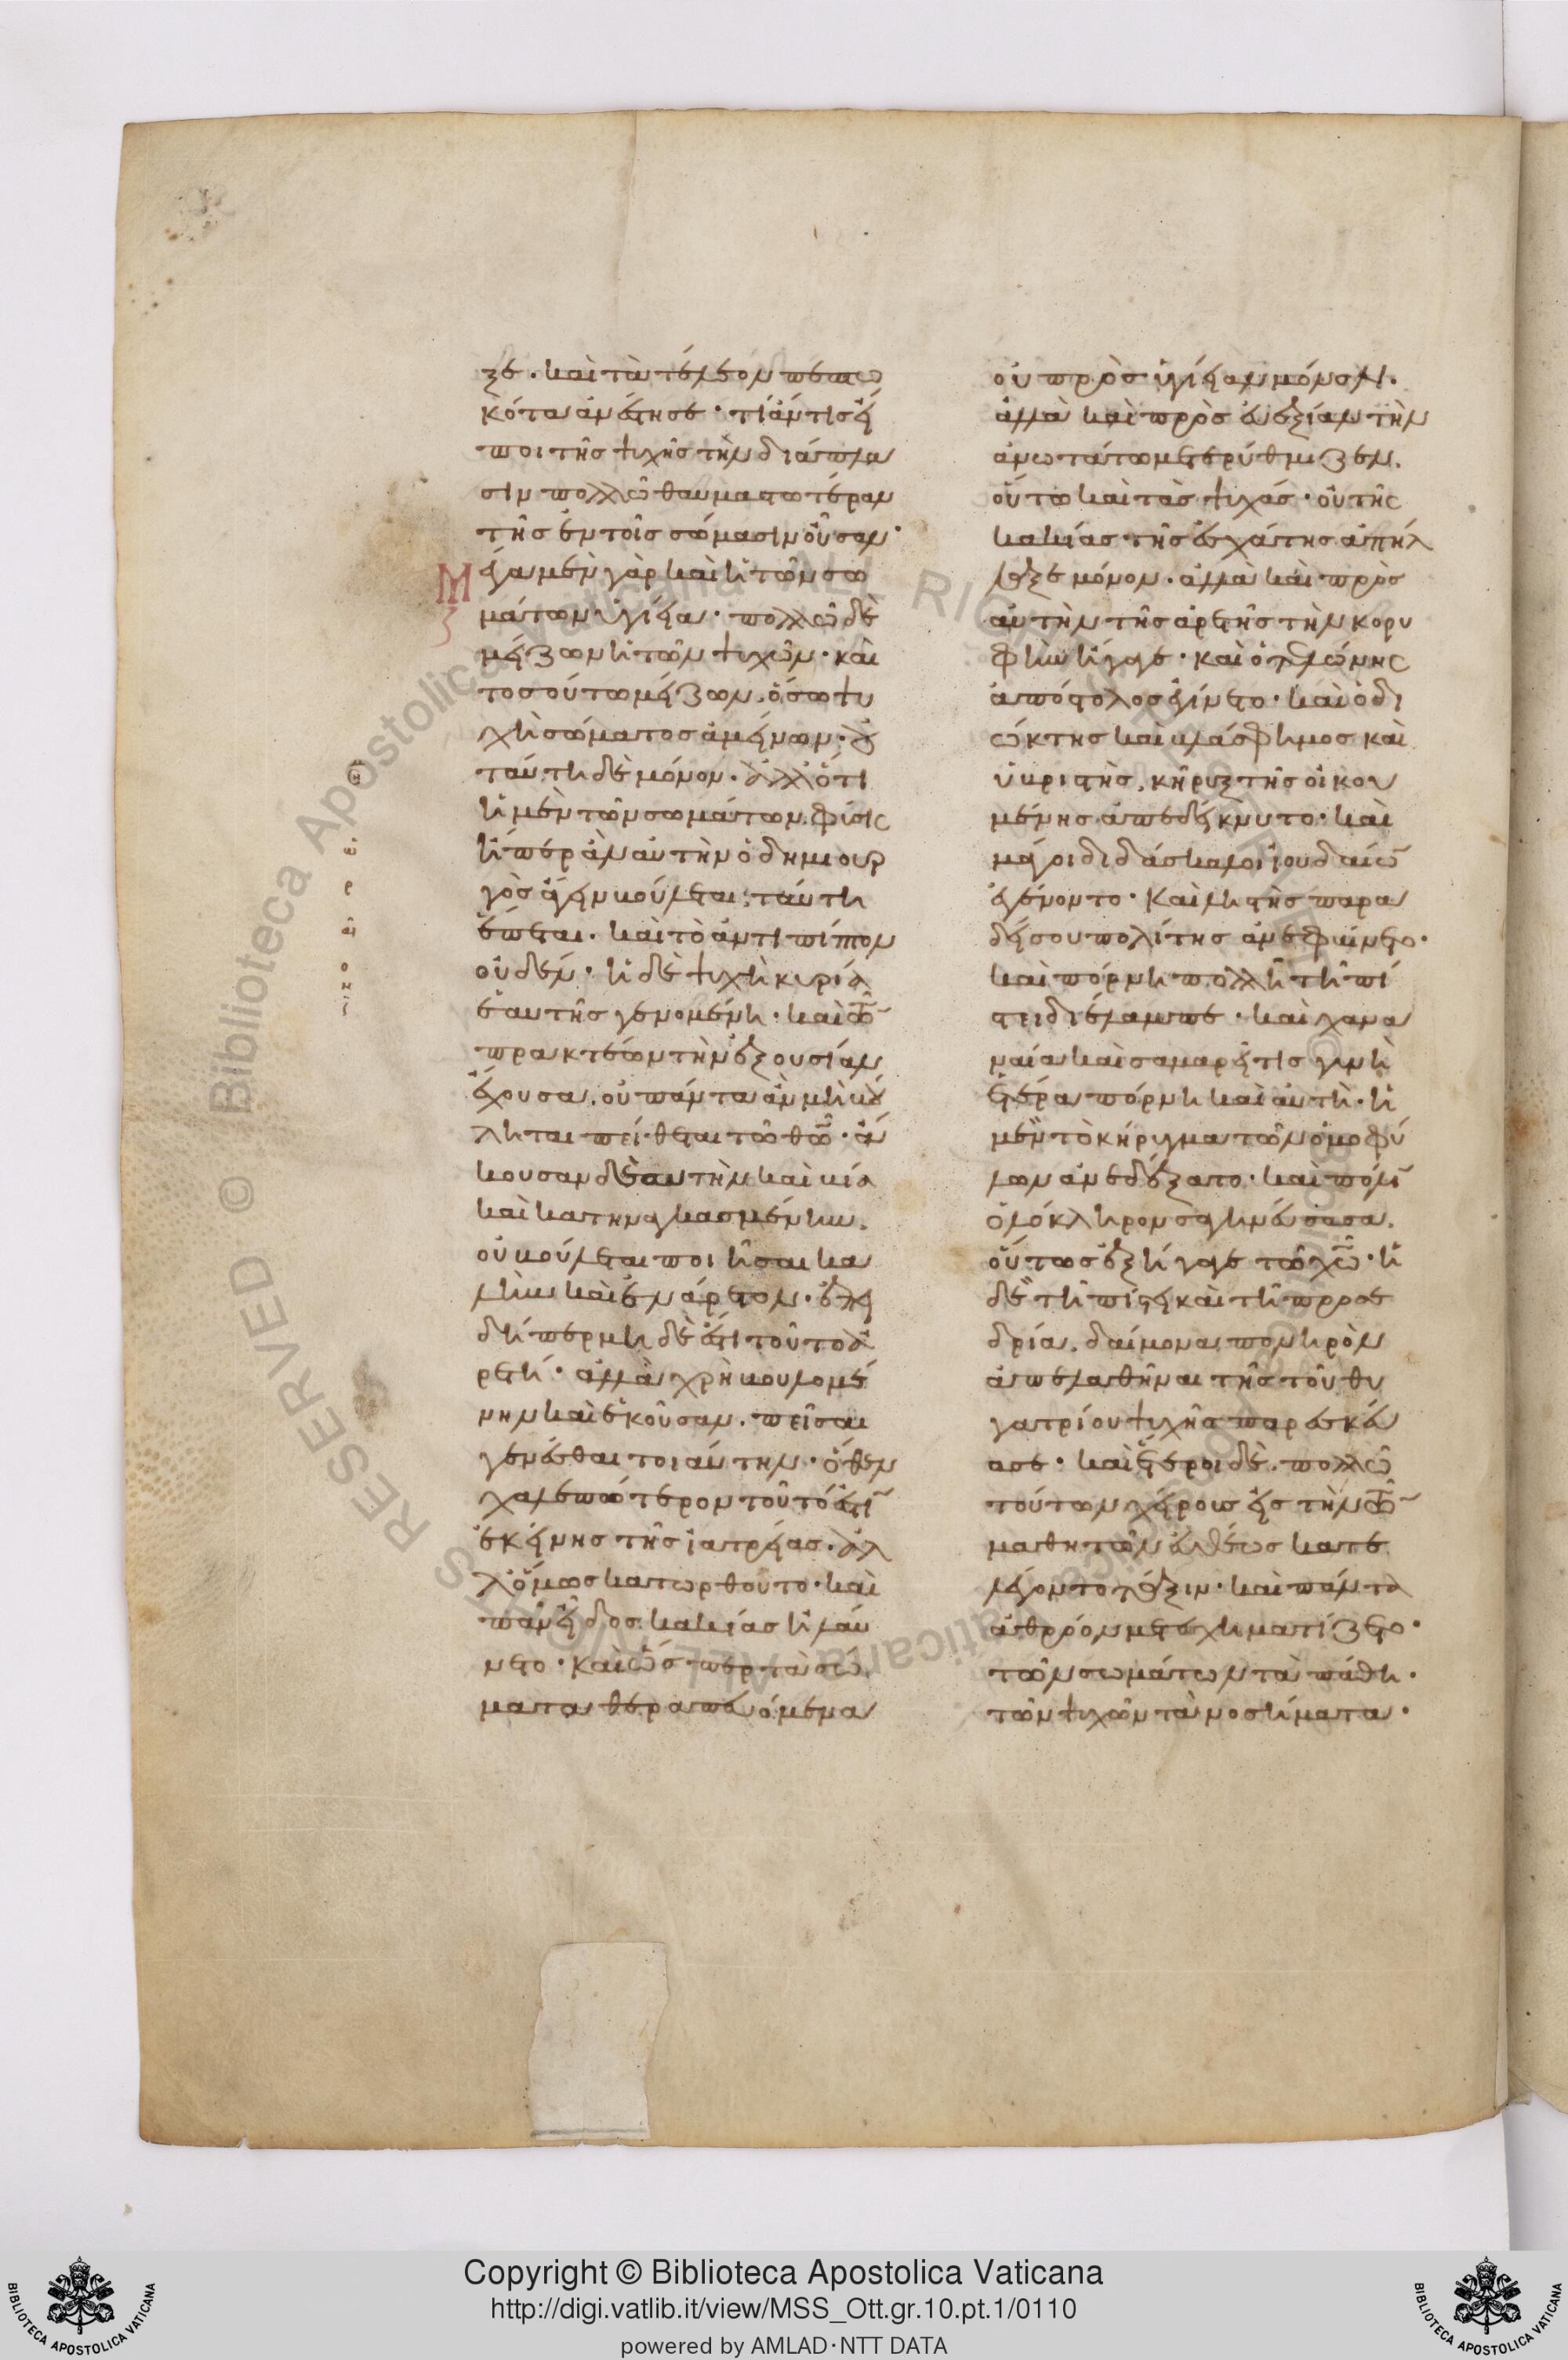 ζε · καὶ τὰ τέλεον πεπω
κότα ἀνέστησε · τί ἄν τις εἴ
ποι τῆς ψυχῆς τὴν διάπλα
σιν πολλῶ θαυμαστωτέραν
τῆς ἐν τοῖς σώμασιν οὖσαν ·
Μ
εία μὲν γὰρ καὶ ἡ τῶν σω
μάτων ὑγίεια · πολλῶ δὲ
μείζων ἡ τῶν ψυχῶν · καὶ
τοσούτω μείζων, ὅσω ψυ
χὴ σώματος ἀμείνων · οὐ
ταύτη δὲ μόνον · ἀλλ' ὅτι
ἡ μὲν τῶν σωμάτων φύσις
ἧπερ ἂν αὐτὴν ὁ δημιουρ
γὸς ἄγειν βούλεται, ταύτη
ἕπεται · καὶ τὸ ἀντιπίπτον
οὐδέν · ἡ δὲ ψυχὴ κυρία
ἑαυτῆς γενομένη · καὶ τῶν
πρακτέων τὴν ἐξουσίαν
ἔχουσα, οὐ πάντα ἂν μὴ βού
ληται πείθεται τῶ θῶ · ἄ
κουσαν δὲ αὐτὴν καὶ βία
καὶ κατηναγκασμένην,
οὐ βούλεται ποιῆσαι κα
λὴν καὶ ἐνάρετον · ἐπει
δήπερ μηδὲ ἔστι τοῦτο ἀ
ρετή · ἀλλὰ χρὴ βουλομέ
νην καὶ ἑκοῦσαν, πεῖσαι
γενέσθαι τοιαύτην · ὅθεν
χαλεπώτερον τοῦτό ἐστι
ἐκείνης τῆς ἰατρείας · ἀλ
λ' ὅμως κατωρθοῦτο · καὶ
πᾶν εἶδος κακίας ἠλαύ
νετο · καὶ ὥσπερ τὰ σώ
ματα θεραπευόμενα
οὐ πρὸς ὑγίειαν μόνον ·
ἀλλὰ καὶ πρὸς εὐεξίαν τὴν
ἀνωτάτω μετερύθμιζεν ·
οὕτω καὶ τὰς ψυχάς · οὐ τῆς
κακίας τῆς ἐσχάτης ἀπήλ
λαξε μόνον · ἀλλὰ καὶ πρὸς
αὐτὴν τῆς ἀρετῆς τὴν κορυ
φὴν ἤγαγε · καὶ ὁ τελώνης
ἀπόστολος ἐγίνετο · καὶ ὁ δι
ώκτης καὶ βλάσφημος καὶ
ὑβριστὴς, κῆρυξ τῆς οἰκου
μένης ἀπεδείκνυτο · καὶ
μάγοι διδάσκαλοι ἰουδαίων
ἐγένοντο · καὶ ληστὴς παρα
δείσου πολίτης ἀνεφαίνετο ·
καὶ πόρνη πολλῆ τῆ πί
στει διέλαμπε · καὶ χανα
ναία καὶ σαμαρεῖτις γυνὴ
ἑτέρα πόρνη καὶ αὐτὴ · ἡ
μὲν τὸ κήρυγμα τῶν ὁμοφύ
λων ἀνεδέξατο · καὶ πόλιν
ὁλόκληρον σαγηνεύσασα,
οὕτως ἐξήγαγε τῶ χῶ · ἡ
δὲ τῆ πίστει καὶ τῆ προσε
δρία, δαίμονα πονηρὸν
ἀπελαθῆναι τῆς τοῦ θυ
γατρίου ψυχῆς παρεσκεύ
ασε · καὶ ἕτεροι δὲ, πολλῶ
τούτων χείρους εἰς τὴν τῶν
μαθητῶν εὐθέως κατε
λέγοντο τάξιν · καὶ πάντα
ἀθρόον μετεσχηματίζετο ·
τῶν σωμάτων τὰ πάθη ·
τῶν ψυχῶν τὰ νοσήματα ·
Copyright © Biblioteca Apostolica Vaticana
http://digi.vatlib.it/view/MSS_Ott.gr.10.pt.1/0110
powered by AMLAD·NTT DATA